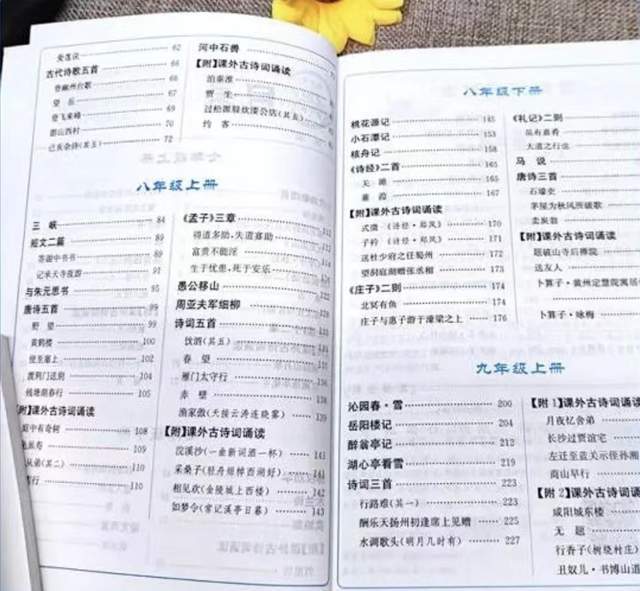 爱莲说 62
古代诗歌五首 66
登幽州台歌 66
望 岳 67
登飞来峰 69
游山西村 70
己亥杂诗(其五) 72
河中石兽
【附】课外古诗词诵读
泊秦淮
贾 生
过松源晨炊漆公店(其五)
约 客
八年级上册
三 峡 84
短文二篇 89
答谢中书书 89
记承天寺夜游 91
与朱元思书 95
唐诗五首 99
野 望 99
黄鹤楼 100
使至塞上 102
渡荆门送别 104
钱塘湖春行 105
【附】课外古诗词诵读
庭中有奇树 108
龟虽寿 109
从弟(其二) 110
110
《孟子》三章 112
得道多助,失道寡助
富贵不能淫
生于忧患,死于安乐
愚公移山
周亚夫军细柳
诗词五首
饮酒(其五)
春 望
雁门太守行
赤 壁
渔家傲(天接云涛连晓雾) 139
【附】课外古诗词诵读
浣溪沙(一曲新词酒一杯) 141
采桑子(轻舟短棹西湖好) 141
相见欢(金陵城上西楼) 142
如梦令(常记溪亭日暮) 143
八年级下册
桃花源记 145
小石潭记 153
核舟记 158
《诗经》二首 165
关 雎 165
蒹 葭 167
【附】课外古诗词诵读
式微(诗经·邶风) 170
子衿(诗经·郑风) 171
送杜少府之任蜀州 172
望洞庭湖赠张丞相 173
《庄子》二则 174
北冥有鱼 174
庄子与惠子游于濠梁之上 176
《礼记》二则
虽有嘉肴
大道之行也
马 说
唐诗三首
石壕吏
茅屋为秋风所破歌
卖炭翁
【附】课外古诗词诵读
题破山寺后禅院
送友人
卜算子·黄州定慧院寓居
卜算子·咏梅
九年级上册
沁园春·雪 200
岳阳楼记 204
醉翁亭记 212
湖心亭看雪 219
诗词三首 223
行路难(其一) 223
酬乐天扬州初逢席上见赠 225
水调歌头(明月几时有) 227
【附1】课外古诗词
月夜忆舍弟
长沙过贾谊宅
左迁至蓝关示侄孙湘
商山早行
【附2】课外古诗词诵
咸阳城东楼
无 题
行香子(树绕村庄)
丑奴儿·书博山道